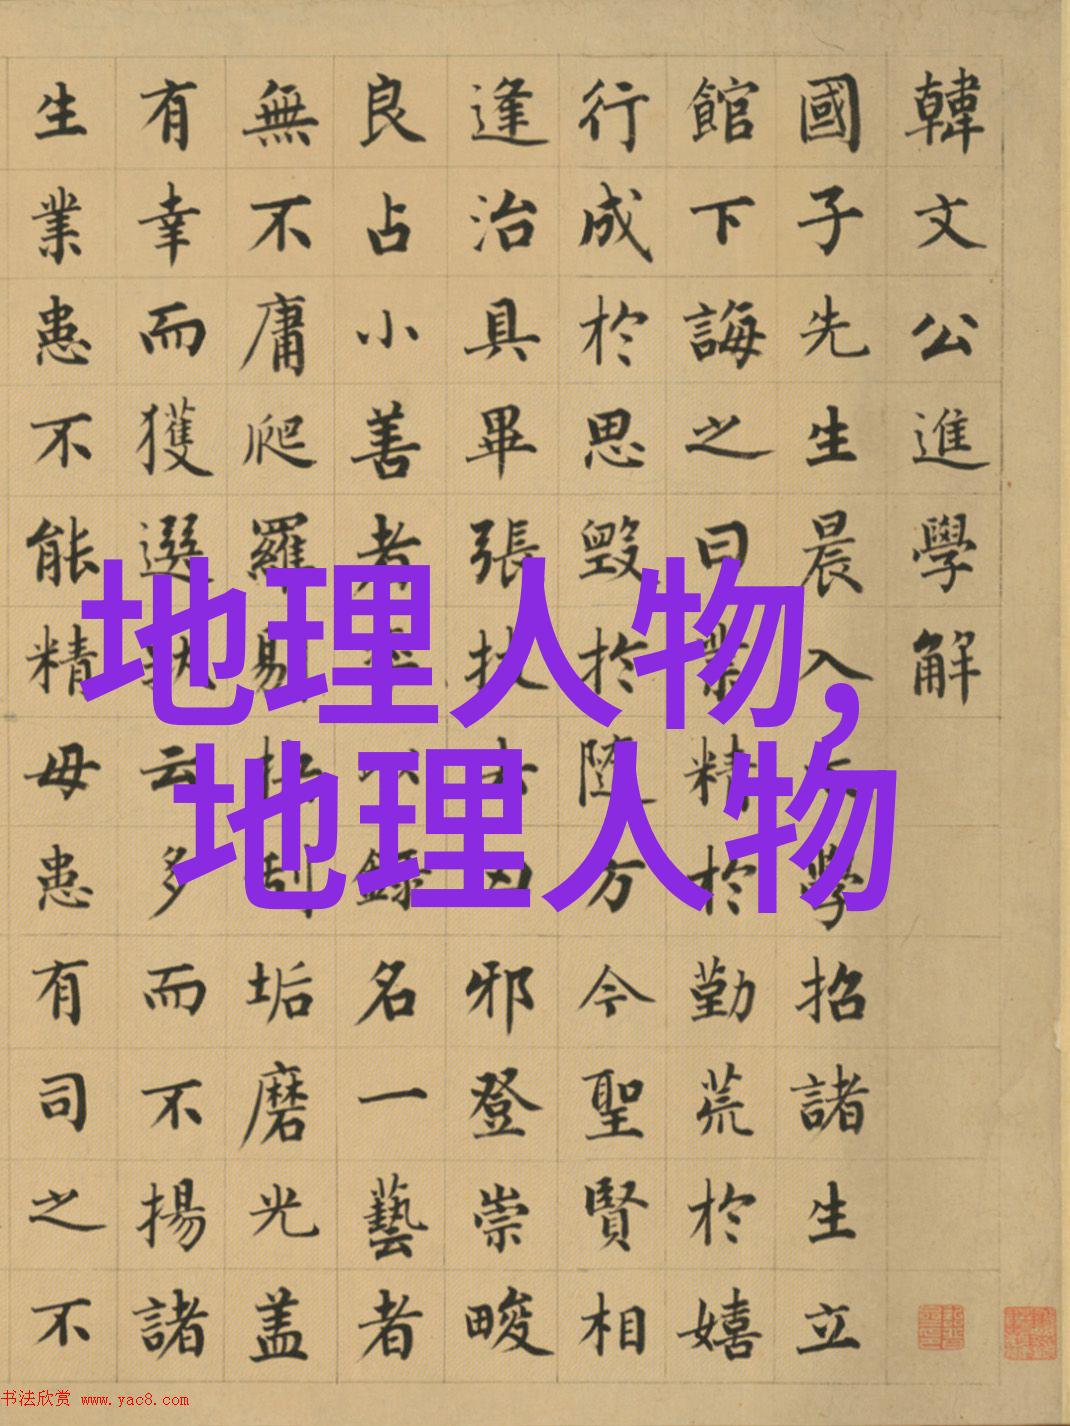 韓文公進學解
國子先生晨入太學招諸生立
館下誨之曰業精於勤荒於嬉
行成於思毀於隨方今聖賢相
逢治具畢張拔去凶邪登崇畯
良占小善者率以錄名一藝者
無不庸爬羅剔抉刮垢磨光盖
有幸而獲選孰云多而不揚諸
生業患不能精毋患有司之不
地理人物，
地理人物
书法欣赏 www.yac8.com